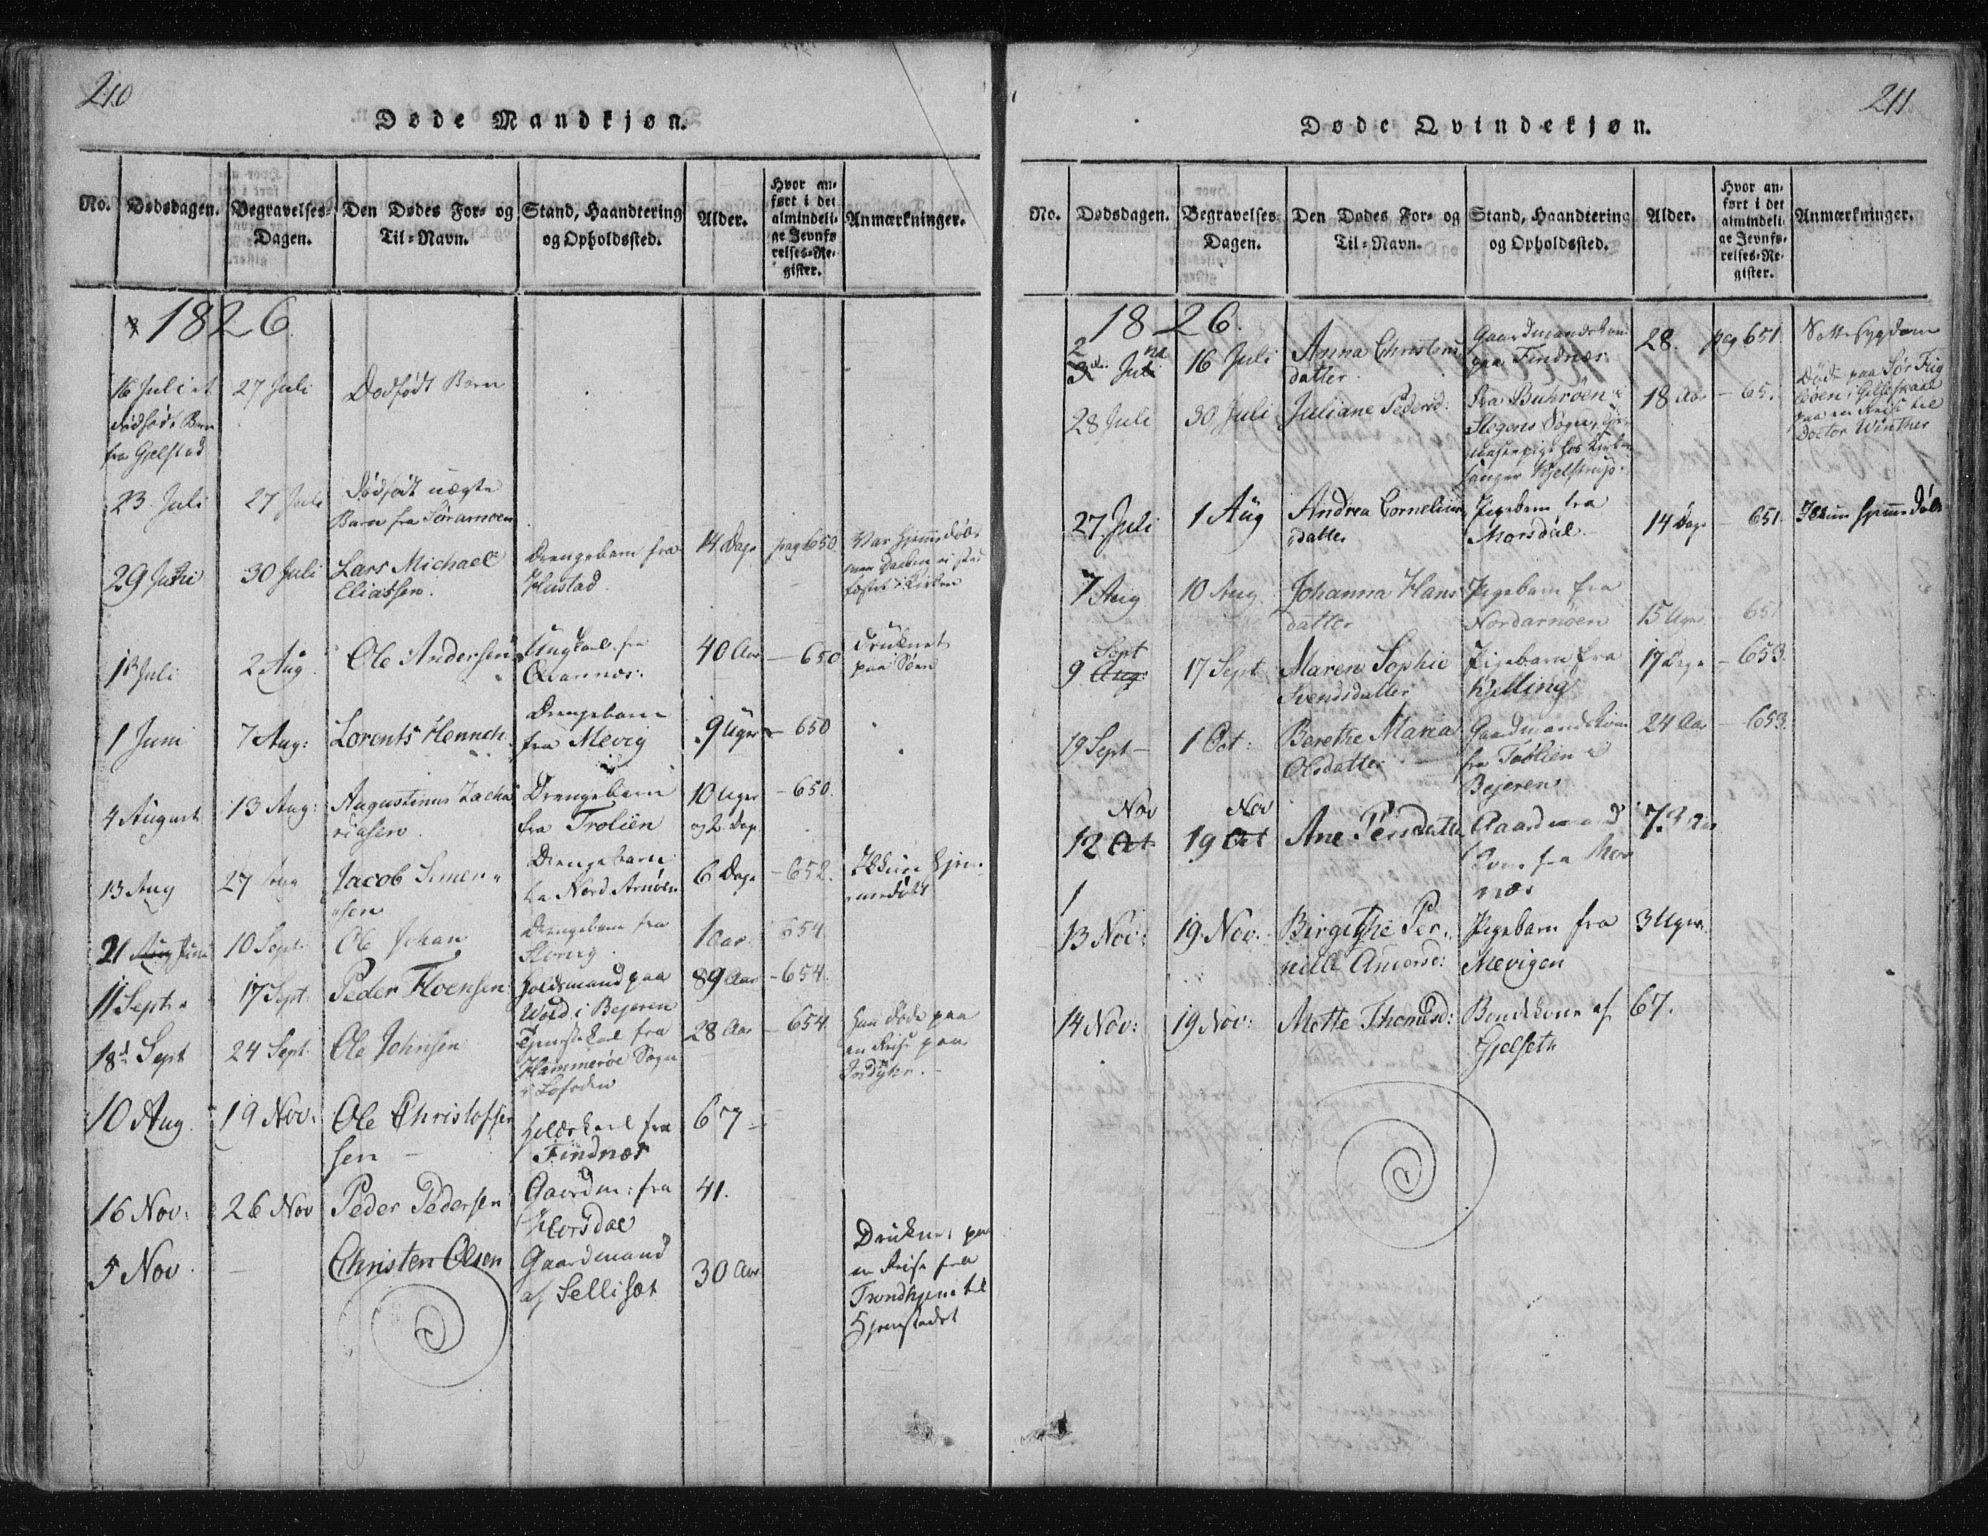 210
Døde Mandkjøn.
No.
Dødsdagen.
Begravelses-
Dagen.
Den Dødes For- og
Til-Navn.
Stand, Haandtering
og Opholdssted.
Alder.
Hvor an-
ført i det
almindeli-
ge Jevnfø-
relses-Re-
gister.
Anmærkninger.
1826
16 Juli et
dødfødt Barn
fra Gjelstad
27 Juli
Dødfødt Barn
23 Juli
27 Juli
Dødfødt uægte
Barn fra Sørarnøen
29 Juni
30 Juli
Lars Michael
Eliassen.
Drengebarn fra
Hustad.
14 Dage
pag 650
Var hjemmedøbt
Juli
2 Aug
Ole Andersen
Ungkarl fra
Qvannæs:
40 Aar
- 650
Druknet
paa Søen
1 Juni
7 Aug:
Lorents Hennch
Drengebarn
fra Mevig
9 Uger
- 650
4 August
13 Aug:
Augustinus Zacha
riasen
Drengebarn
fra Trolien
10 Uger
og 2 Dage
- 650.
13 Aug
27 Aug
Jacob Simen-
sen
Drengebarn
fra Nord Arnøen
6 Dage
- 652.
Ikkun hjem-
medøbt
21 Aug Juni
10 Sept
Ole Johan
Drengebarn fra
Storvig
1 aar
654
11 Sept
17 Sept:
Peder Floensen
Holdsmand paa
Wold i Bejeren
89 Aar
- 654.
18d Sept
24 Sept.
Ole Johnsen
Tjenstekarl fra
Hammerøe Sogn
i Lofoden
28 Aar
- 654
han døde paa
en Reise paa
10 Aug.
19 Nov:
Ole Christoffer
sen -
fra
Findnæs
67
16 Nov:
26 Nov
Peder Pedersen
Gaardm: fra
Morsdal
41.
5 Nov
Christen Olsen
Gaardmand
af Sellisæt
30 Aar
Druknet paa
en Reise fra
Trondhjem til
Hjemstedet
211
Døde Qvindekjøn.
No.
Dødsdagen.
Begravelses-
Dagen.
Den Dødes For- og
Til-Navn.
Stand, Haandtiering
og Opholdssted.
Alder.
Hvor an-
ført i det
almindeli-
ge Jevnfø-
relses-Re-
gister.
Anmærkninger.
1826.
2
3 Juli
16 Juli
Anna Christens
datter
Gaardmandskone
paa Findnæs
28.
pag 651.
28 Juli
30 Juli
Juliane Pedersd:
fra Buhrøen i
Stegens Sogn,
Kjelstrup.
18 Aar
- 65.
Døde paa Sør Fug
løen i Gilleskaal
paa en Reise til
Doctor Winther
27 Juli
1 Aug
Andrea Cornelius
datter
Pigebarn fra
Morsdal.
14 Dage
- 651.
Ikkun hjemmedøbt
7 Aug
10 Aug.
Johanna Hans
datter
Pigebarn fra
Nordarnøen
15 Uger
- 651
9 Aug: Sept
17 Sept:
Maren Sophie
Svendsdatter
Pigebarn fra
Kjelling
17 Dage
- 653.
19 Sept -
1 Oct:
Berethe Maria
Olsdatter
Gaardmandskone
fra Tøllien i
Bejeren
24 Aar
- 653.
12 Oct Nov
19 Oct Nov
Ane Persdatter
Gaardmands
Kone fra Mor
næs
73 Aar
13 Nov:
19. Nov.
Birgithe Per-
nille Andersd:
Pigebarn fra
Mevigen
3 Uger.
14 Nov:
19 Nov:
Mette Thomasd:
Bondekone af
Gjelseth
67.